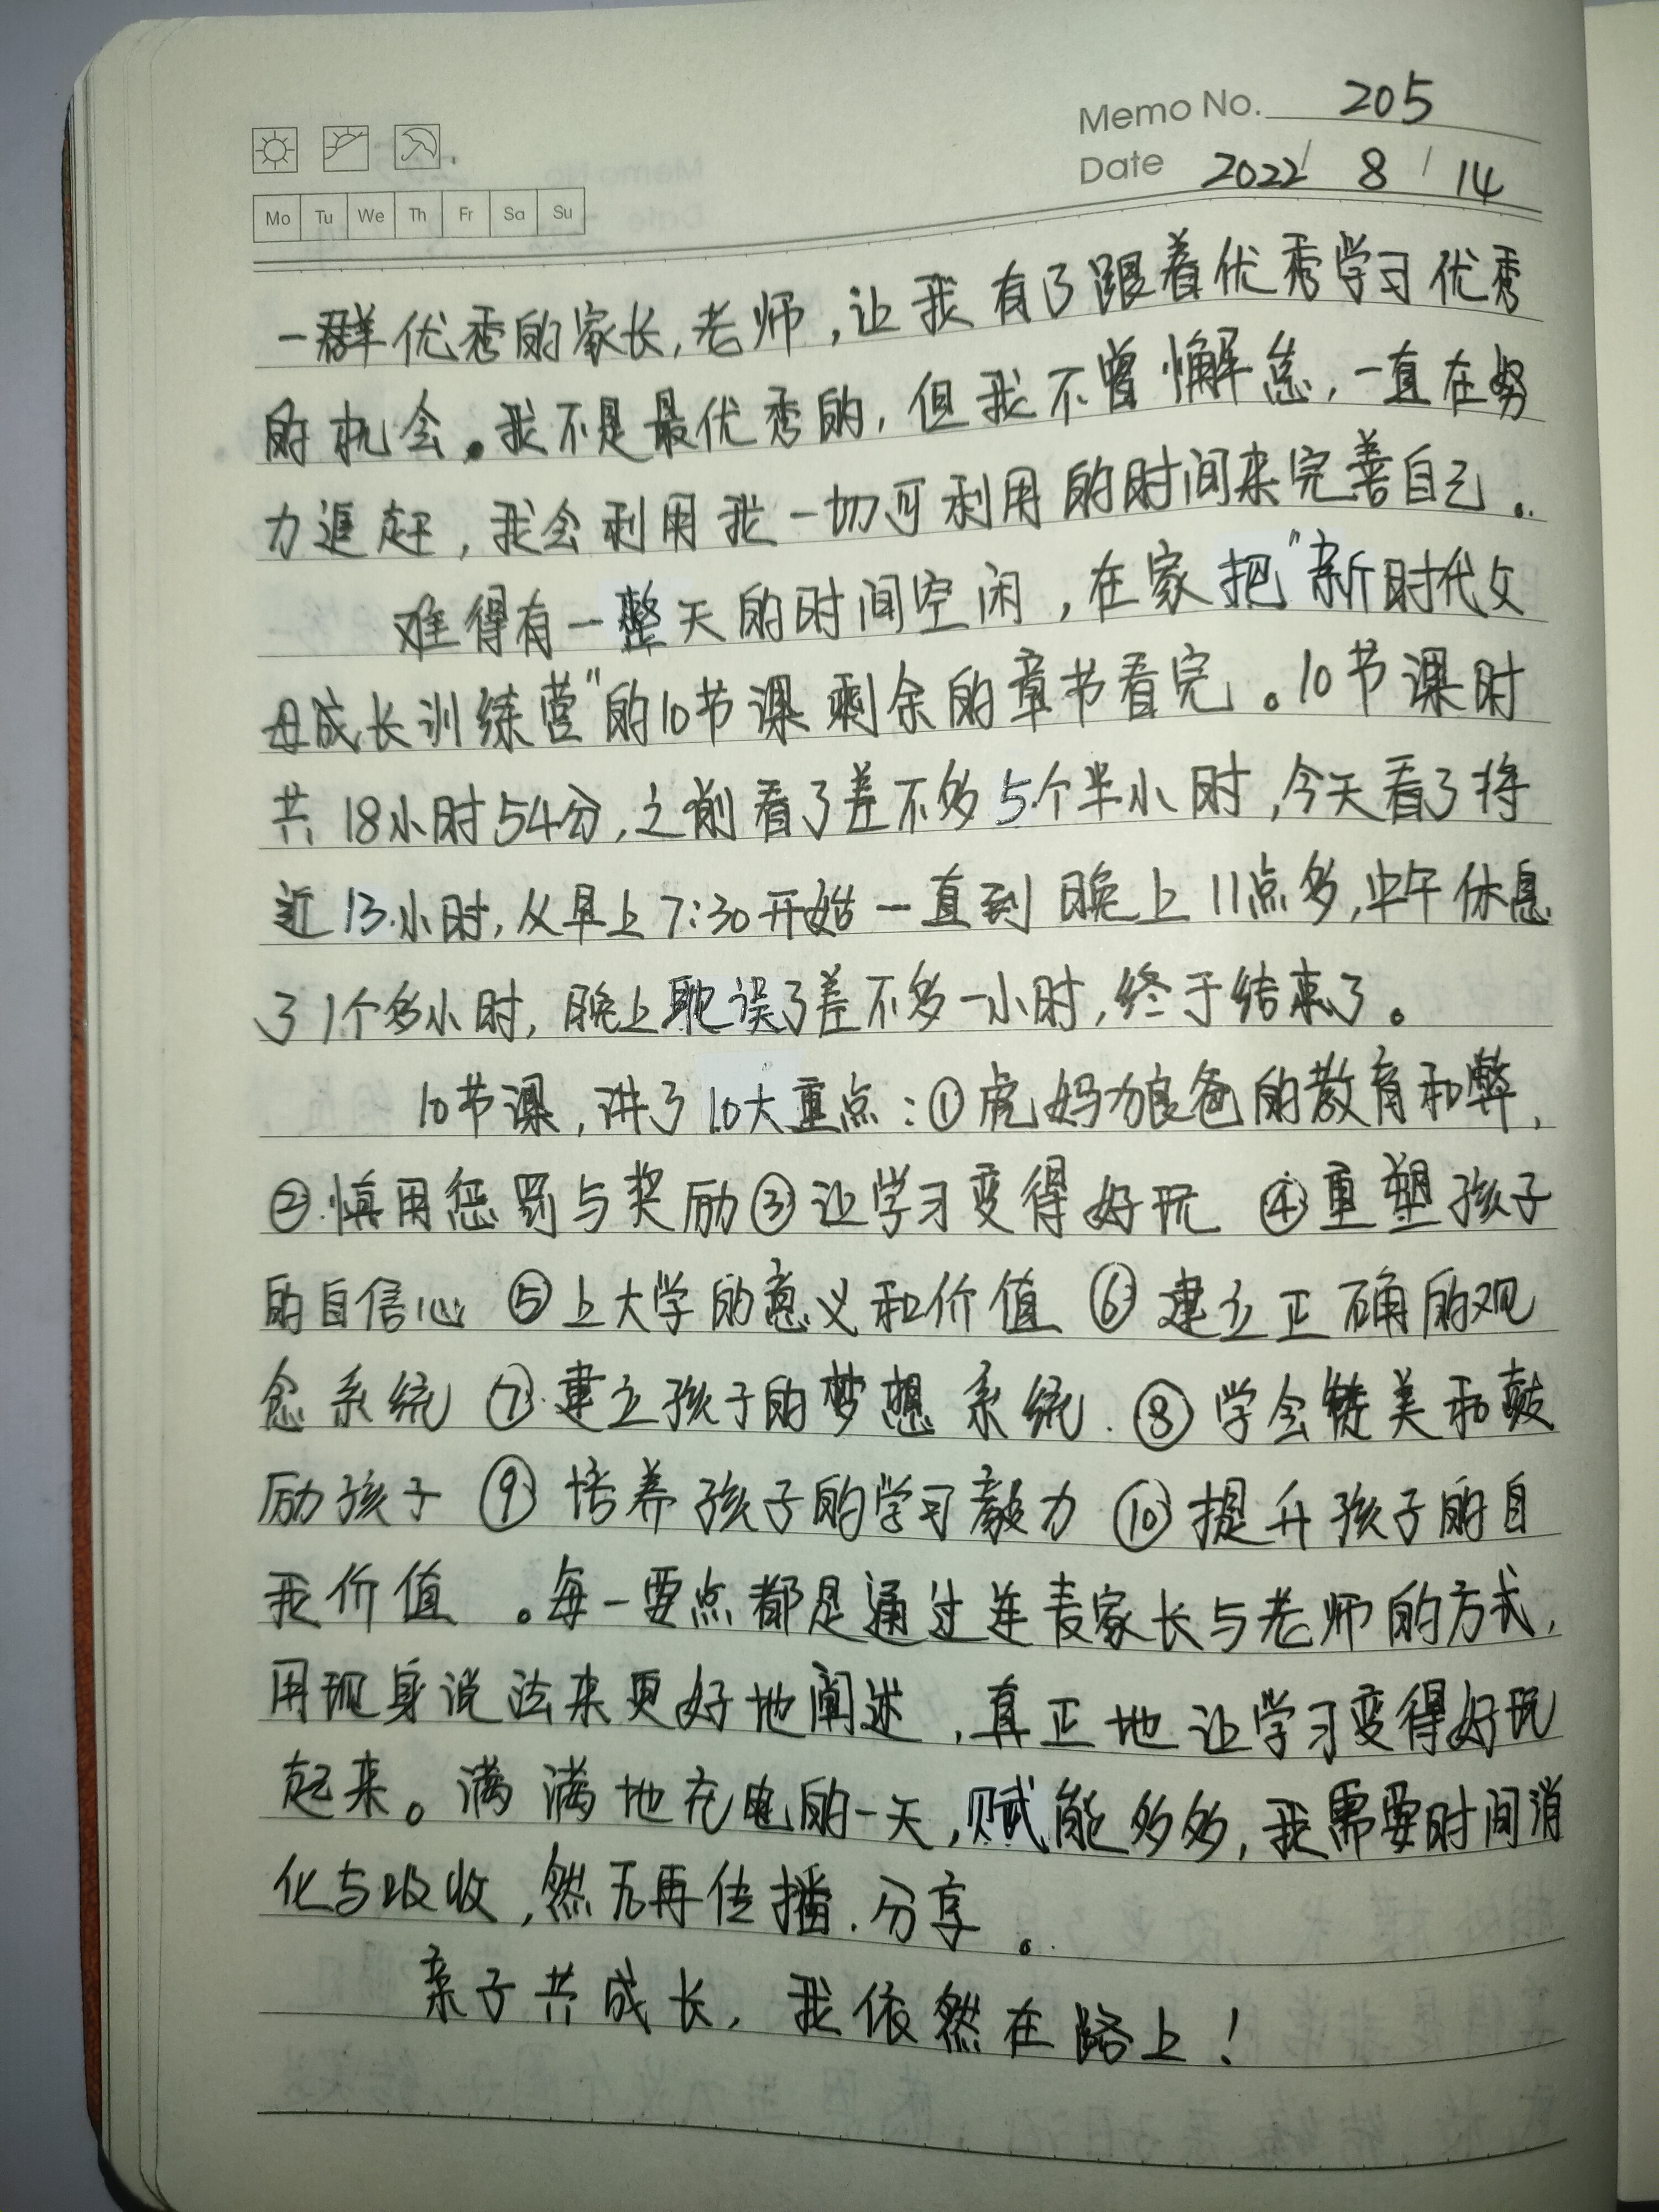 Memo No. 205
Date 2022/ 8 / 14
Mo Tu We Th Fr Sa Su
一群优秀的家长,老师,让我有了跟着优秀学习优秀
的机会。我不是最优秀的,但我不曾懈怠,一直在努
力追赶,我会利用我一切可利用的时间来完善自己。
难得有一整天的时间空闲,在家把"新时代父
母成长训练营"的10节课剩余的章节看完。10节课时
共18小时54分,之前看了差不多5个半小时,今天看了将
近13小时,从早上7:30开始一直到晚上11点多,中午休息
了1个多小时,晚上耽误了差不多一小时,终于结束了。
10节课,讲了10大重点:①虎妈狼爸的教育和弊,
②慎用惩罚与奖励③让学习变得好玩 ④重塑孩子
的自信心 ⑤上大学的意义和价值 ⑥建立正确的观
念系统 ⑦建立孩子的梦想系统.⑧学会赞美和鼓
励孩子 ⑨培养孩子的学习毅力 ⑩提升孩子的自
我价值 。每一要点都是通过连麦家长与老师的方式,
用现身说法来更好地阐述,真正地让学习变得好玩
起来。满满地充电的一天,赋能多多,我需要时间消
化与吸收,然后再传播.分享。
亲子共成长,我依然在路上!